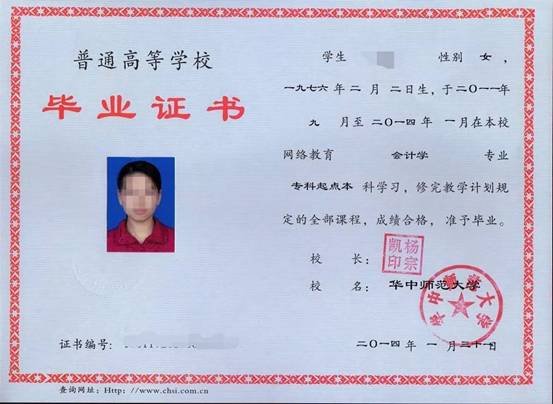 普通高等学校
毕业证书
学生 性别 女，
一九七六年二月二日生，于二〇一一年
九月至二〇一四年一月在本校
网络教育 会计学 专业
专科起点本科学习，修完教学计划规
定的全部课程，成绩合格，准予毕业。
校长：
杨宗凯印
校名：华中师范大学
华中师范大学
证书编号：
二〇一四年一月三十一日
查询网址：Http：//www.chsi.com.cn